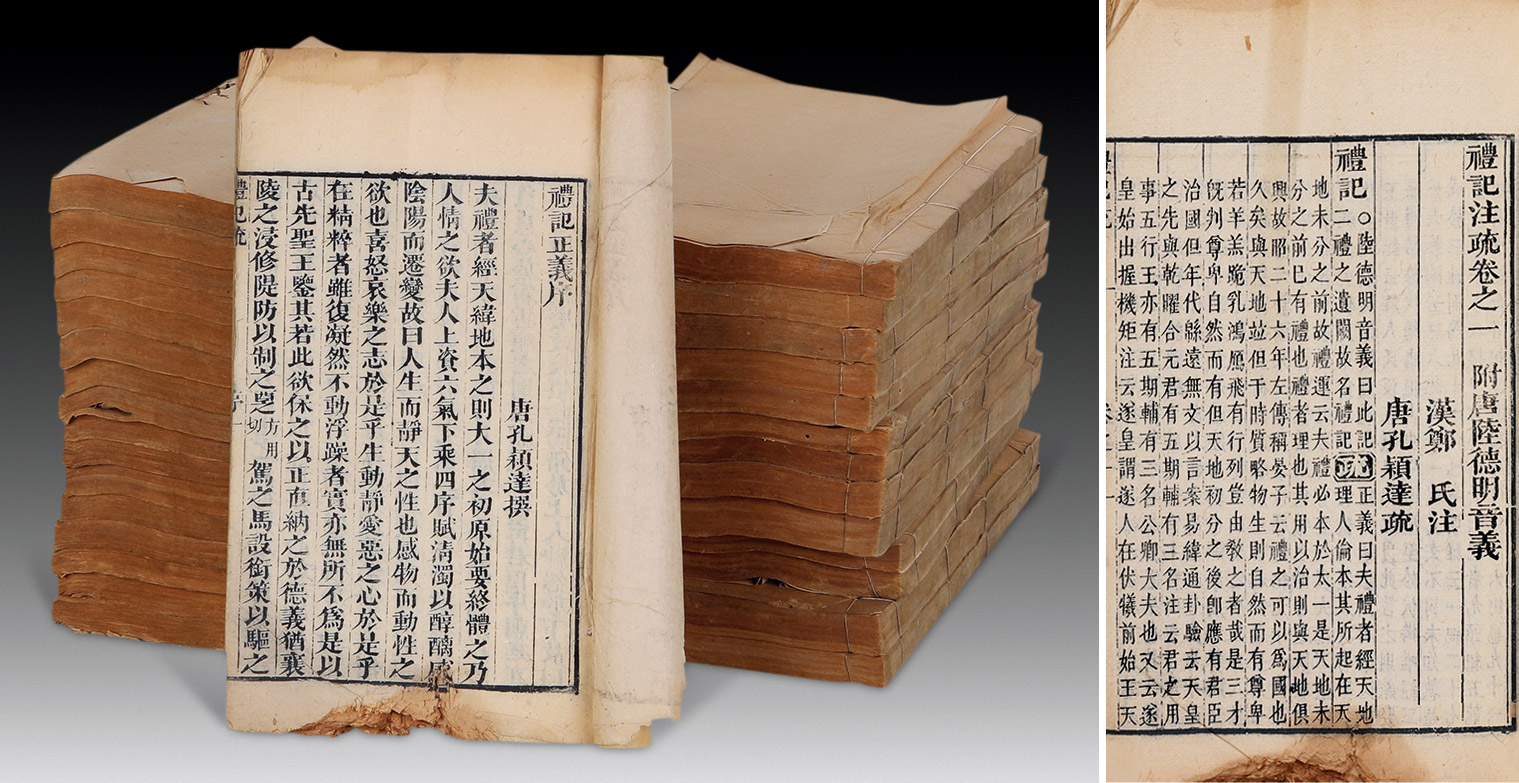 禮記正義序
唐孔穎達撰
夫禮者經天緯地本之則大一之初原始要終體之乃
人情之欲夫人上資六氣下乘四序賦清濁以醇醨感
陰陽而遷變故曰人生而靜天之性也感物而動性之
欲也喜怒哀樂之志於是乎生動靜愛惡之心於是乎
在精粹者雖復凝然不動浮躁者實亦無所不爲是以
古先聖王鑒其若此欲保之以正直納之於德義猶襄
陵之浸修隄防以制之覂方用切駕之馬設銜策以驅之
禮記疏
禮記注疏卷之一 附唐陸德明音義
漢鄭 氏注
唐孔穎達疏
禮記○陸德明音義曰此記二禮之遺闕故名禮記疏正義曰夫禮者經天地理人倫本其所起在天
地未分之前故禮運云夫禮必本於太一是天地未
分之前已有禮也禮者理也其用以治則與天地俱
興故昭二十六年左傳稱晏子云禮之可以爲國也
久矣與天地竝但于時質略物生則自然而有尊卑
若羊羔跪乳鴻鴈飛有行列豈由敎之者哉是三才
既判尊卑自然而有但天地初分之後卽應有君臣
治國但年代緜遠無文以言案易緯通卦驗云天皇
之先與乾曜合元君有五期輔有三名注云君之用
事五行王亦有五期輔有三名公卿大夫也又云遂
皇始出握機矩注云遂皇謂遂人在伏犧前始王天